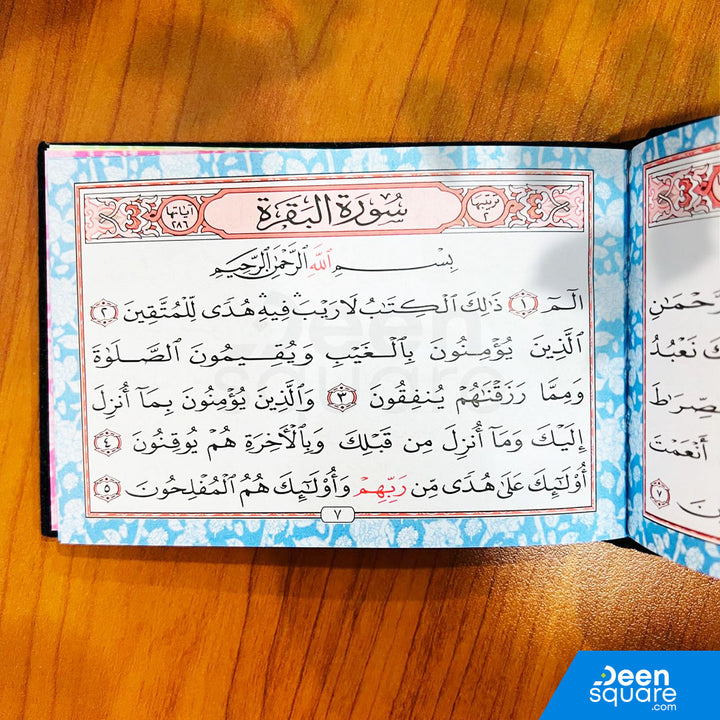 سُورَةُ الْبَقَرَةِ
ترتيبها ٢
آياتها ٢٨٦
بِسْمِ اللَّهِ الرَّحْمَٰنِ الرَّحِيمِ
الٓمٓ ١ ذَٰلِكَ الْكِتَٰبُ لَا رَيْبَ ۛ فِيهِ ۛ هُدًى لِّلْمُتَّقِينَ ٢
الَّذِينَ يُؤْمِنُونَ بِالْغَيْبِ وَيُقِيمُونَ الصَّلَوٰةَ
وَمِمَّا رَزَقْنَٰهُمْ يُنفِقُونَ ٣ وَالَّذِينَ يُؤْمِنُونَ بِمَآ أُنزِلَ
إِلَيْكَ وَمَآ أُنزِلَ مِن قَبْلِكَ وَبِالْآخِرَةِ هُمْ يُوقِنُونَ ٤
أُو۟لَٰٓئِكَ عَلَىٰ هُدًى مِّن رَّبِّهِمْ وَأُو۟لَٰٓئِكَ هُمُ الْمُفْلِحُونَ ٥
٧
نَعْبُدُ
أَنْعَمْتَ
٧
Deen
square
Deen
square
.com